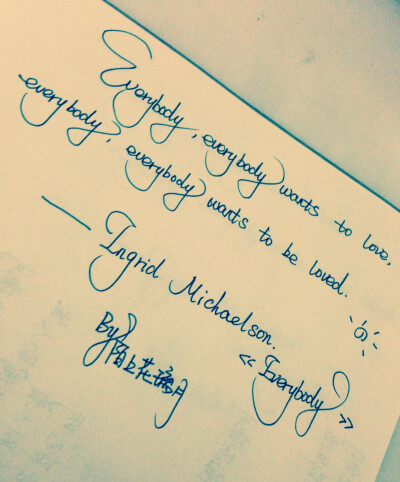 Everybody, everybody wants to love,
everybody, everybody wants to be loved.
— Ingrid Michaelson.
《Everybody》
By 陌上花